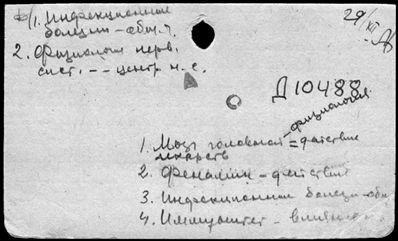 1. Инфекционные
болезни - общ. ч.
29/XII
2. Физиология нерв.
сист. -- центр. н. с.
Д 10488
физиология
1. Мозг головной = действие
лекарств
2. Фенамин - действие
3. Инфекционные болезни - общ
4. Иммунитет - влияние